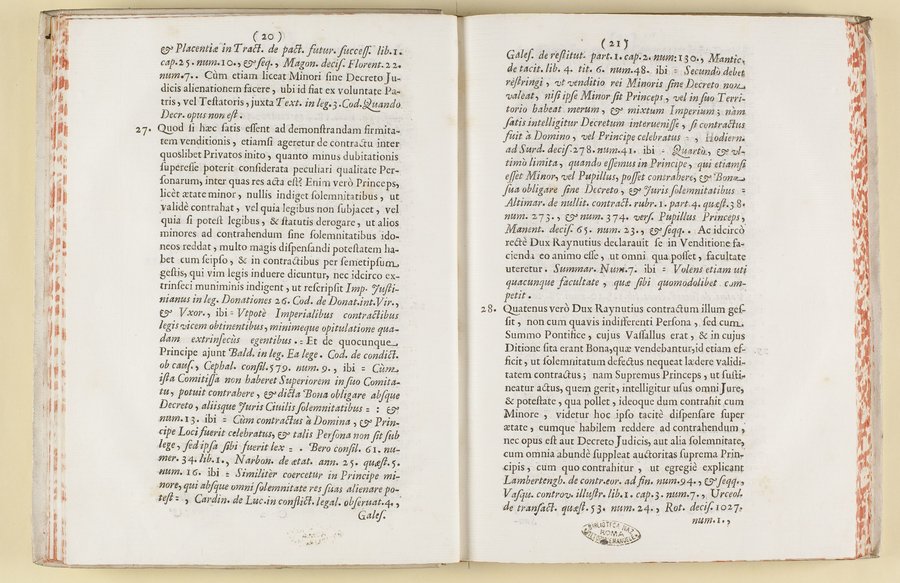 (20)
& Placentia in Tract. de pact. futur. success. lib. 1.
cap. 25. num. 10., & seq., Magon. decis. Florent. 22.
num. 7.. Cùm etiam liceat Minori sine Decreto Ju-
dicis alienationem facere, ubi id fiat ex voluntate Pa-
tris, vel Testatoris, juxta Text. in leg. 3. Cod. Quando
Decr. opus non est.
27. Quod si hæc satis essent ad demonstrandam firmita-
tem venditionis, etiamsi ageretur de contractu inter
quoslibet Privatos inito, quanto minus dubitationis
superesse poterit considerata peculiari qualitate Per-
sonarum, inter quas res acta est? Enim verò Princeps,
licèt ætate minor, nullis indiget solemnitatibus, ut
validè contrahat, vel quia legibus non subjacet, vel
quia si potest legibus, & statutis derogare, ut alios
minores ad contrahendum sine solemnitatibus ido-
neos reddat, multo magis dispensandi potestatem ha-
bet cum seipso, & in contractibus per semetipsum
gestis, qui vim legis induere dicuntur, nec idcirco ex-
trinseci muniminis indigent, ut rescripsit Imp. Justi-
nianus in leg. Donationes 26. Cod. de Donat. int. Vir.,
& Vxor., ibi = Vtpotè Imperialibus contractibus
legis vicem obtinentibus, minimeque opitulatione qua-
dam extrinsecùs egentibus. = Et de quocunque
Principe ajunt Bald. in leg. Ea lege. Cod. de condict.
ob caus., Cephal. consil. 579. num. 9., ibi = Cùm
ista Comitissa non haberet Superiorem in suo Comita-
tu, potuit contrahere, & dicta Bona obligare absque
Decreto, aliisque Juris Civilis solemnitatibus = : &
num. 13. ibi = Cùm contractus à Domina, & Prin-
cipe Loci fuerit celebratus, & talis Persona non sit sub
lege, sed ipsa sibi fuerit lex = . Bero consil. 61. nu-
mer. 34. lib. 1., Narbon. de ætat. ann. 25. quæst. 5.
num. 16. ibi = Similitèr coercetur in Principe mi-
nore, qui absque omni solemnitate res suas alienare po-
test = , Cardin. de Luc. in conflict. legal. observat. 4.,
Gales.
(21)
Gales. de restitut. part. 1. cap. 2. num. 130., Mantic.
de tacit. lib. 4. tit. 6. num. 48. ibi = Secundò debet
restringi, vt venditio rei Minoris sine Decreto non
valeat, nisi ipse Minor sit Princeps, vel in suo Terri-
torio habeat merum, & mixtum Imperium; nàm
satis intelligitur Decretum interuenisse, si contractus
fuit à Domino, vel Principe celebratus = , Hodiern.
ad Surd. decis. 278. num. 41. ibi = Quartò, & vl-
timò limita, quando essemus in Principe, qui etiamsi
esset Minor, vel Pupillus, posset contrahere, & Bona
sua obligare sine Decreto, & Juris solemnitatibus =
Altimar. de nullit. contract. rubr. 1. part. 4. quæst. 38.
num. 273., & num. 374. vers. Pupillus Princeps,
Manent. decis. 65. num. 23., & seqq.. Ac idcircò
rectè Dux Raynutius declarauit se in Venditione fa-
cienda eo animo esse, ut omni qua posset, facultate
uteretur. Summar. Num. 7. ibi = Volens etiam uti
quacunque facultate, quæ sibi quomodolibet com-
petit.
28. Quatenus verò Dux Raynutius contractum illum ges-
sit, non cum quavis indifferenti Persona, sed cum
Summo Pontifice, cujus Vasallus erat, & in cujus
Ditione sita erant Bona, quæ vendebantur, id etiam ef-
ficit, ut solemnitatum defectus nequeat lædere validi-
tatem contractus; nam Supremus Princeps, ut susti-
neatur actus, quem gerit, intelligitur usus omni Jure,
& potestate, qua pollet, ideoque dum contrahit cum
Minore, videtur hoc ipso tacitè dispensare super
ætate, eumque habilem reddere ad contrahendum,
nec opus est aut Decreto Judicis, aut alia solemnitate,
cum omnia abundè suppleat auctoritas suprema Prin-
cipis, cum quo contrahitur, ut egregiè explicant
Lambertengh. de contr. eor. ad fin. num. 94., & seqq.,
Vasqu. controv. illustr. lib. 1. cap. 3. num. 7., Urceol.
de transact. quæst. 53. num. 24., Rot. decis. 1027.
num. 1.,
BIBLIOTECA NAZ.
ROMA
VITTORIO EMANUELE